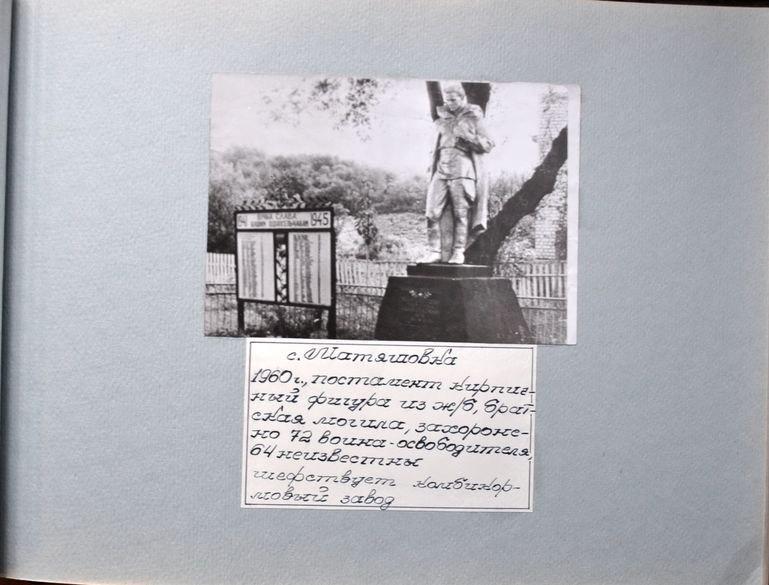 ВІЧНА СЛАВА
1941 НАШИМ ОДНОСЕЛЬЧАНАМ 1945
с. Матяшовка
1960 г., постамент кирпич-
ный фигура из ж/б, брат-
ская могила, захороне-
но 72 воина-освободителя,
64 неизвестны
шефствует комбикор-
мовый завод